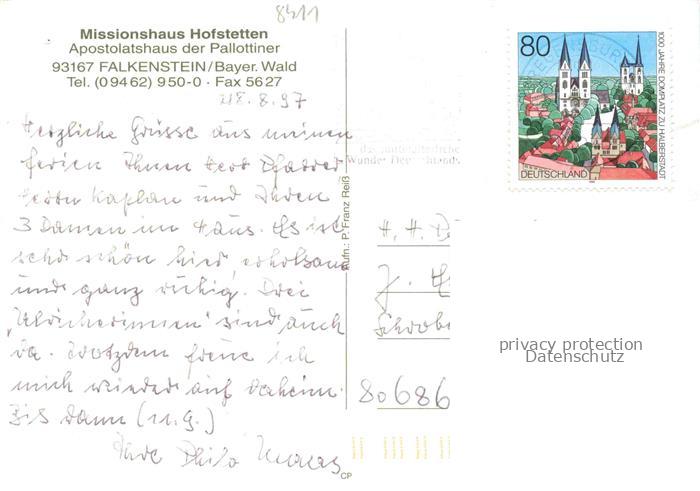 8411
Missionshaus Hofstetten
Apostolatshaus der Pallottiner
93167 FALKENSTEIN/Bayer. Wald
Tel. (0 94 62) 9 50-0 · Fax 56 27
28.8.97
Herzliche Grüsse aus meinen
Ferien Ihnen Herr Pfarrer
Herrn Kaplan und Ihren
3 Damen im Haus. Es ist
sehr schön hier, erholsam
und ganz ruhig. Drei
"Ulricherinnen" sind auch
da. Trotzdem freue ich
mich wieder auf daheim.
Bis dann (m.g.)
Ihre
Aufn.: P. Franz Reiß
CP
das mittelalterliche
Wunder Deutschlands
80
DEUTSCHLAND
1000 JAHRE DOMPLATZ ZU HALBERSTADT
H. H.
J.
Schrob
80686
privacy protection
Datenschutz